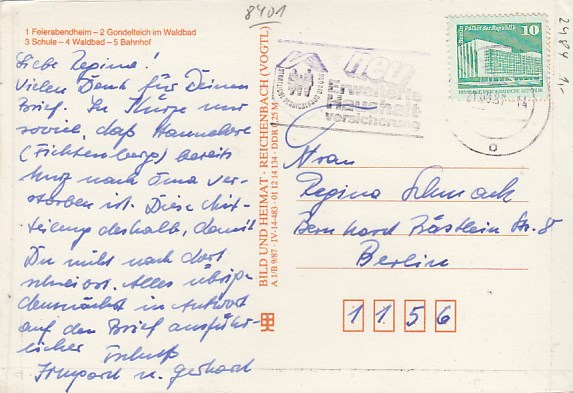 8401
1 Feierabendheim – 2 Gondelteich im Waldbad
3 Schule – 4 Waldbad – 5 Bahnhof
Liebe Regina!
Vielen Dank für Deinen
Brief. In Kürze nur
soviel, daß Hannelore
(Fichtenberg) bereits
kurz nach Oma ver-
storben ist. Diese Mit-
teilung deshalb, damit
Du nicht nach dort
schreibst. Alles übrige
demnächst in Antwort
auf den Brief ausführ-
licher
Irmgard u. Gerhard
BILD UND HEIMAT · REICHENBACH (VOGTL)
A 1/B 9/87 · IV-14-483 · 01 12 14 134 · DDR 0,25 M
neu
Erweiterte
Haushalt-
versicherung
Palast der Republik
10
2484 1,-
Frau
Regina Schmack
Bernhard Bästlein Str. 8
Berlin
1 1 5 6